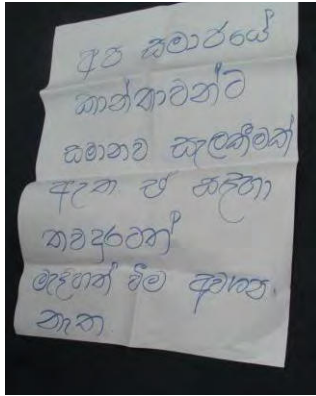 අප සමාජයේ
කාන්තාවන්ට
සමානව සැලකීමක්
ඇත ඒ සඳහා
තවදුරටත්
මැදිහත් වීම අවශ්‍ය
නැත